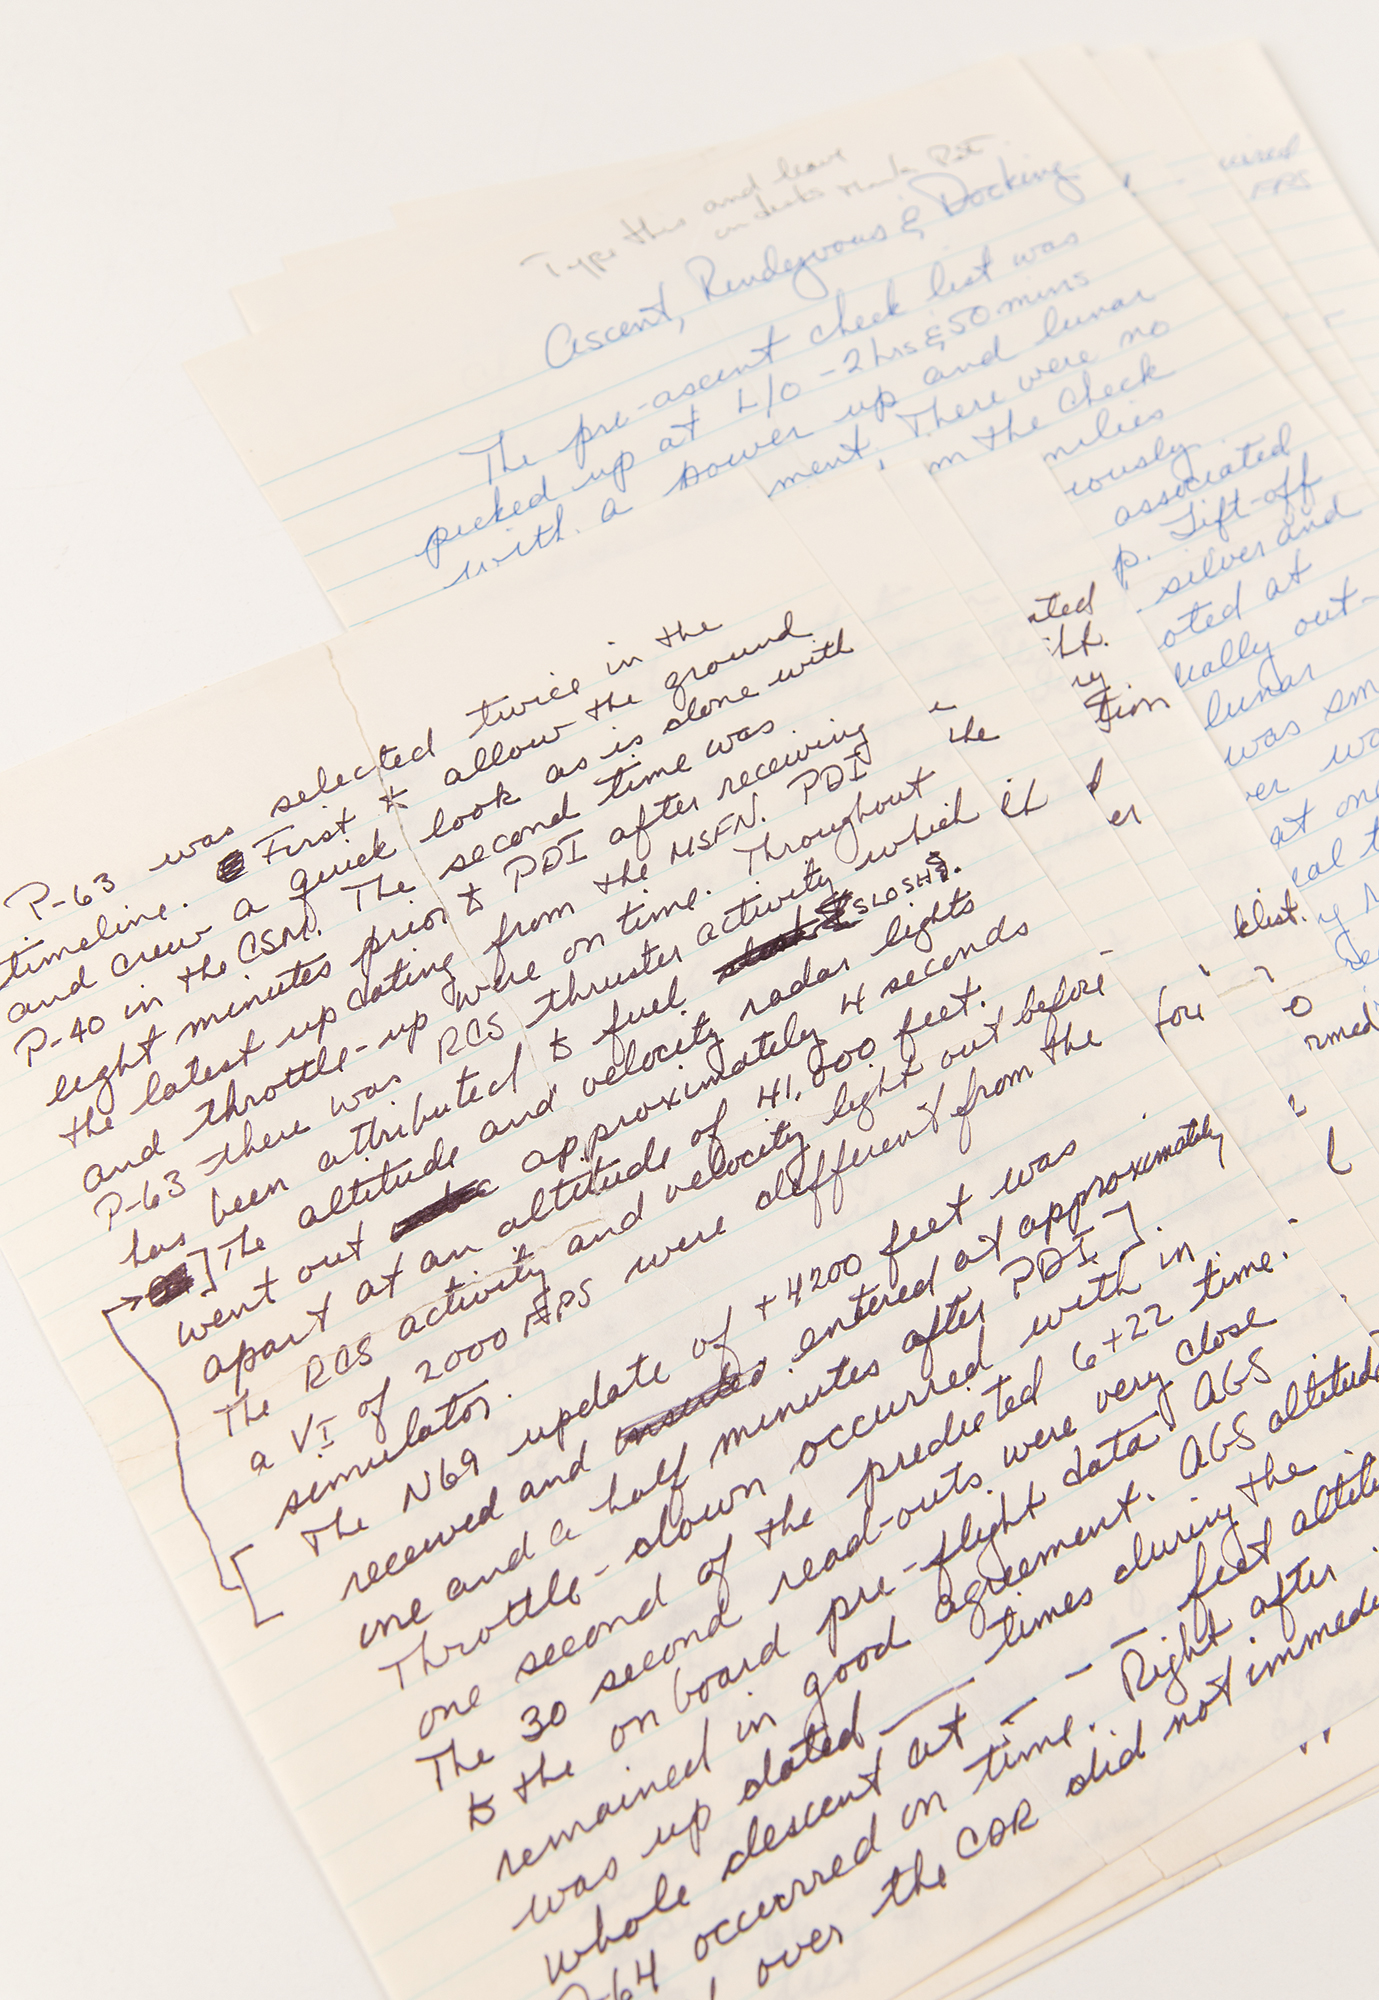 Type this and leave
Ascent, Rendezvous & Docking
The pre-ascent check list was
picked up at L/O - 2 hrs & 50 mins
with a power up and lunar
ment. There were no
in the check
iously
associated
p. Lift-off
silver and
oted at
ually out-
lunar
was sm
at one
P-63 was selected twice in the
timeline. First to allow the ground
and crew a quick look as is done with
P-40 in the CSM. The second time was
eight minutes prior to PDI after receiving
the latest up dating from the MSFN. PDI
and throttle-up were on time. Throughout the
P-63 there was RCS thruster activity which
has been attributed to fuel SLOSH.
The altitude and velocity radar lights
went out approximately 4 seconds
apart at an altitude of 41,000 feet.
The RCS activity and velocity light out before
a VI of 2000 FPS were different from the
simulator.
The N69 update of +4200 feet was
received and entered at approximately
one and a half minutes after PDI].
Throttle-down occurred with in
one second of the predicted 6+22 time.
The 30 second read-outs were very close
to the on board pre-flight data AGS
remained in good agreement. AGS altitude
was up dated ___ times during the
whole descent at --- feet
P-64 occurred on time. Right after
over the CDR did not immedi
tion
klist.